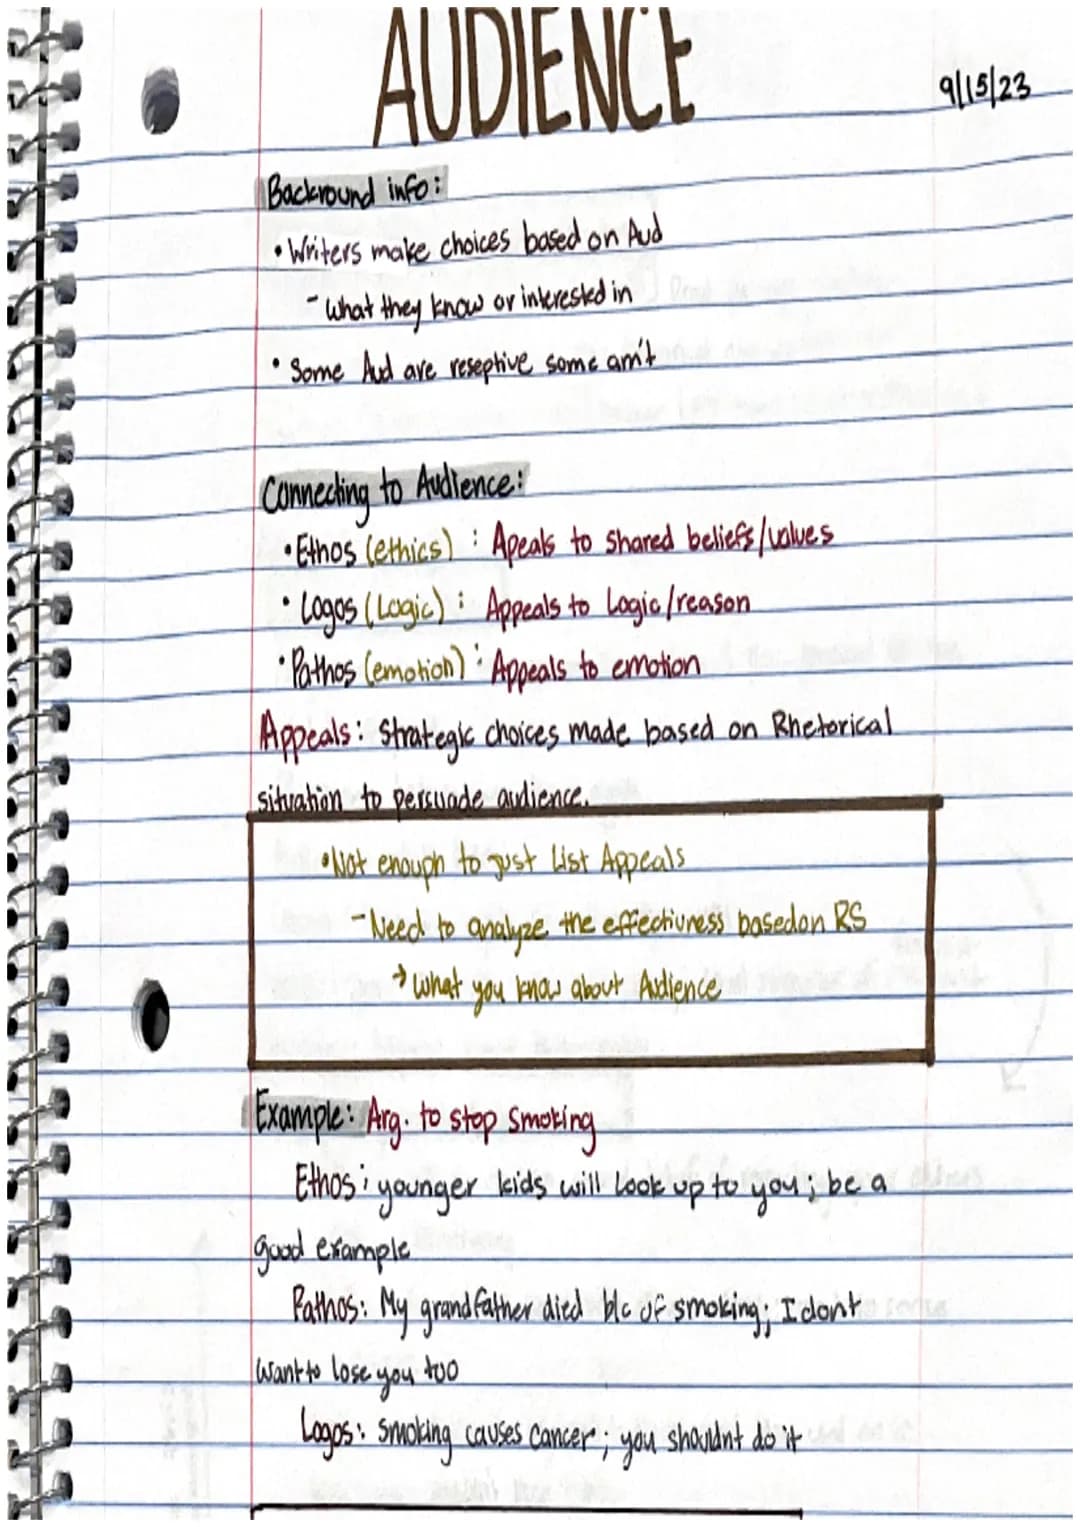 AUDIENCE
9/15/23
Backround info:
• Writers make choices based on Aud
- What they know or interested in
• Some Aud are reseptive some am't
Connecting to Audience:
• Ethos (ethics) : Apeals to shared beliefs/values
• Logos (Logic) : Appeals to Logic/reason
• Pathos (emotion) : Appeals to emotion
Appeals: Strategic choices made based on Rhetorical
situation to persuade audience.
• Not enough to just List Appeals
- Need to analyze the effectivness based on RS
→ What you know about Audience
Example: Arg. to stop smoking
Ethos: younger kids will look up to you; be a
good example
Pathos: My grandfather died b/c of smoking; I dont
want to lose you too
Logos: Smoking causes cancer; you shouldnt do it